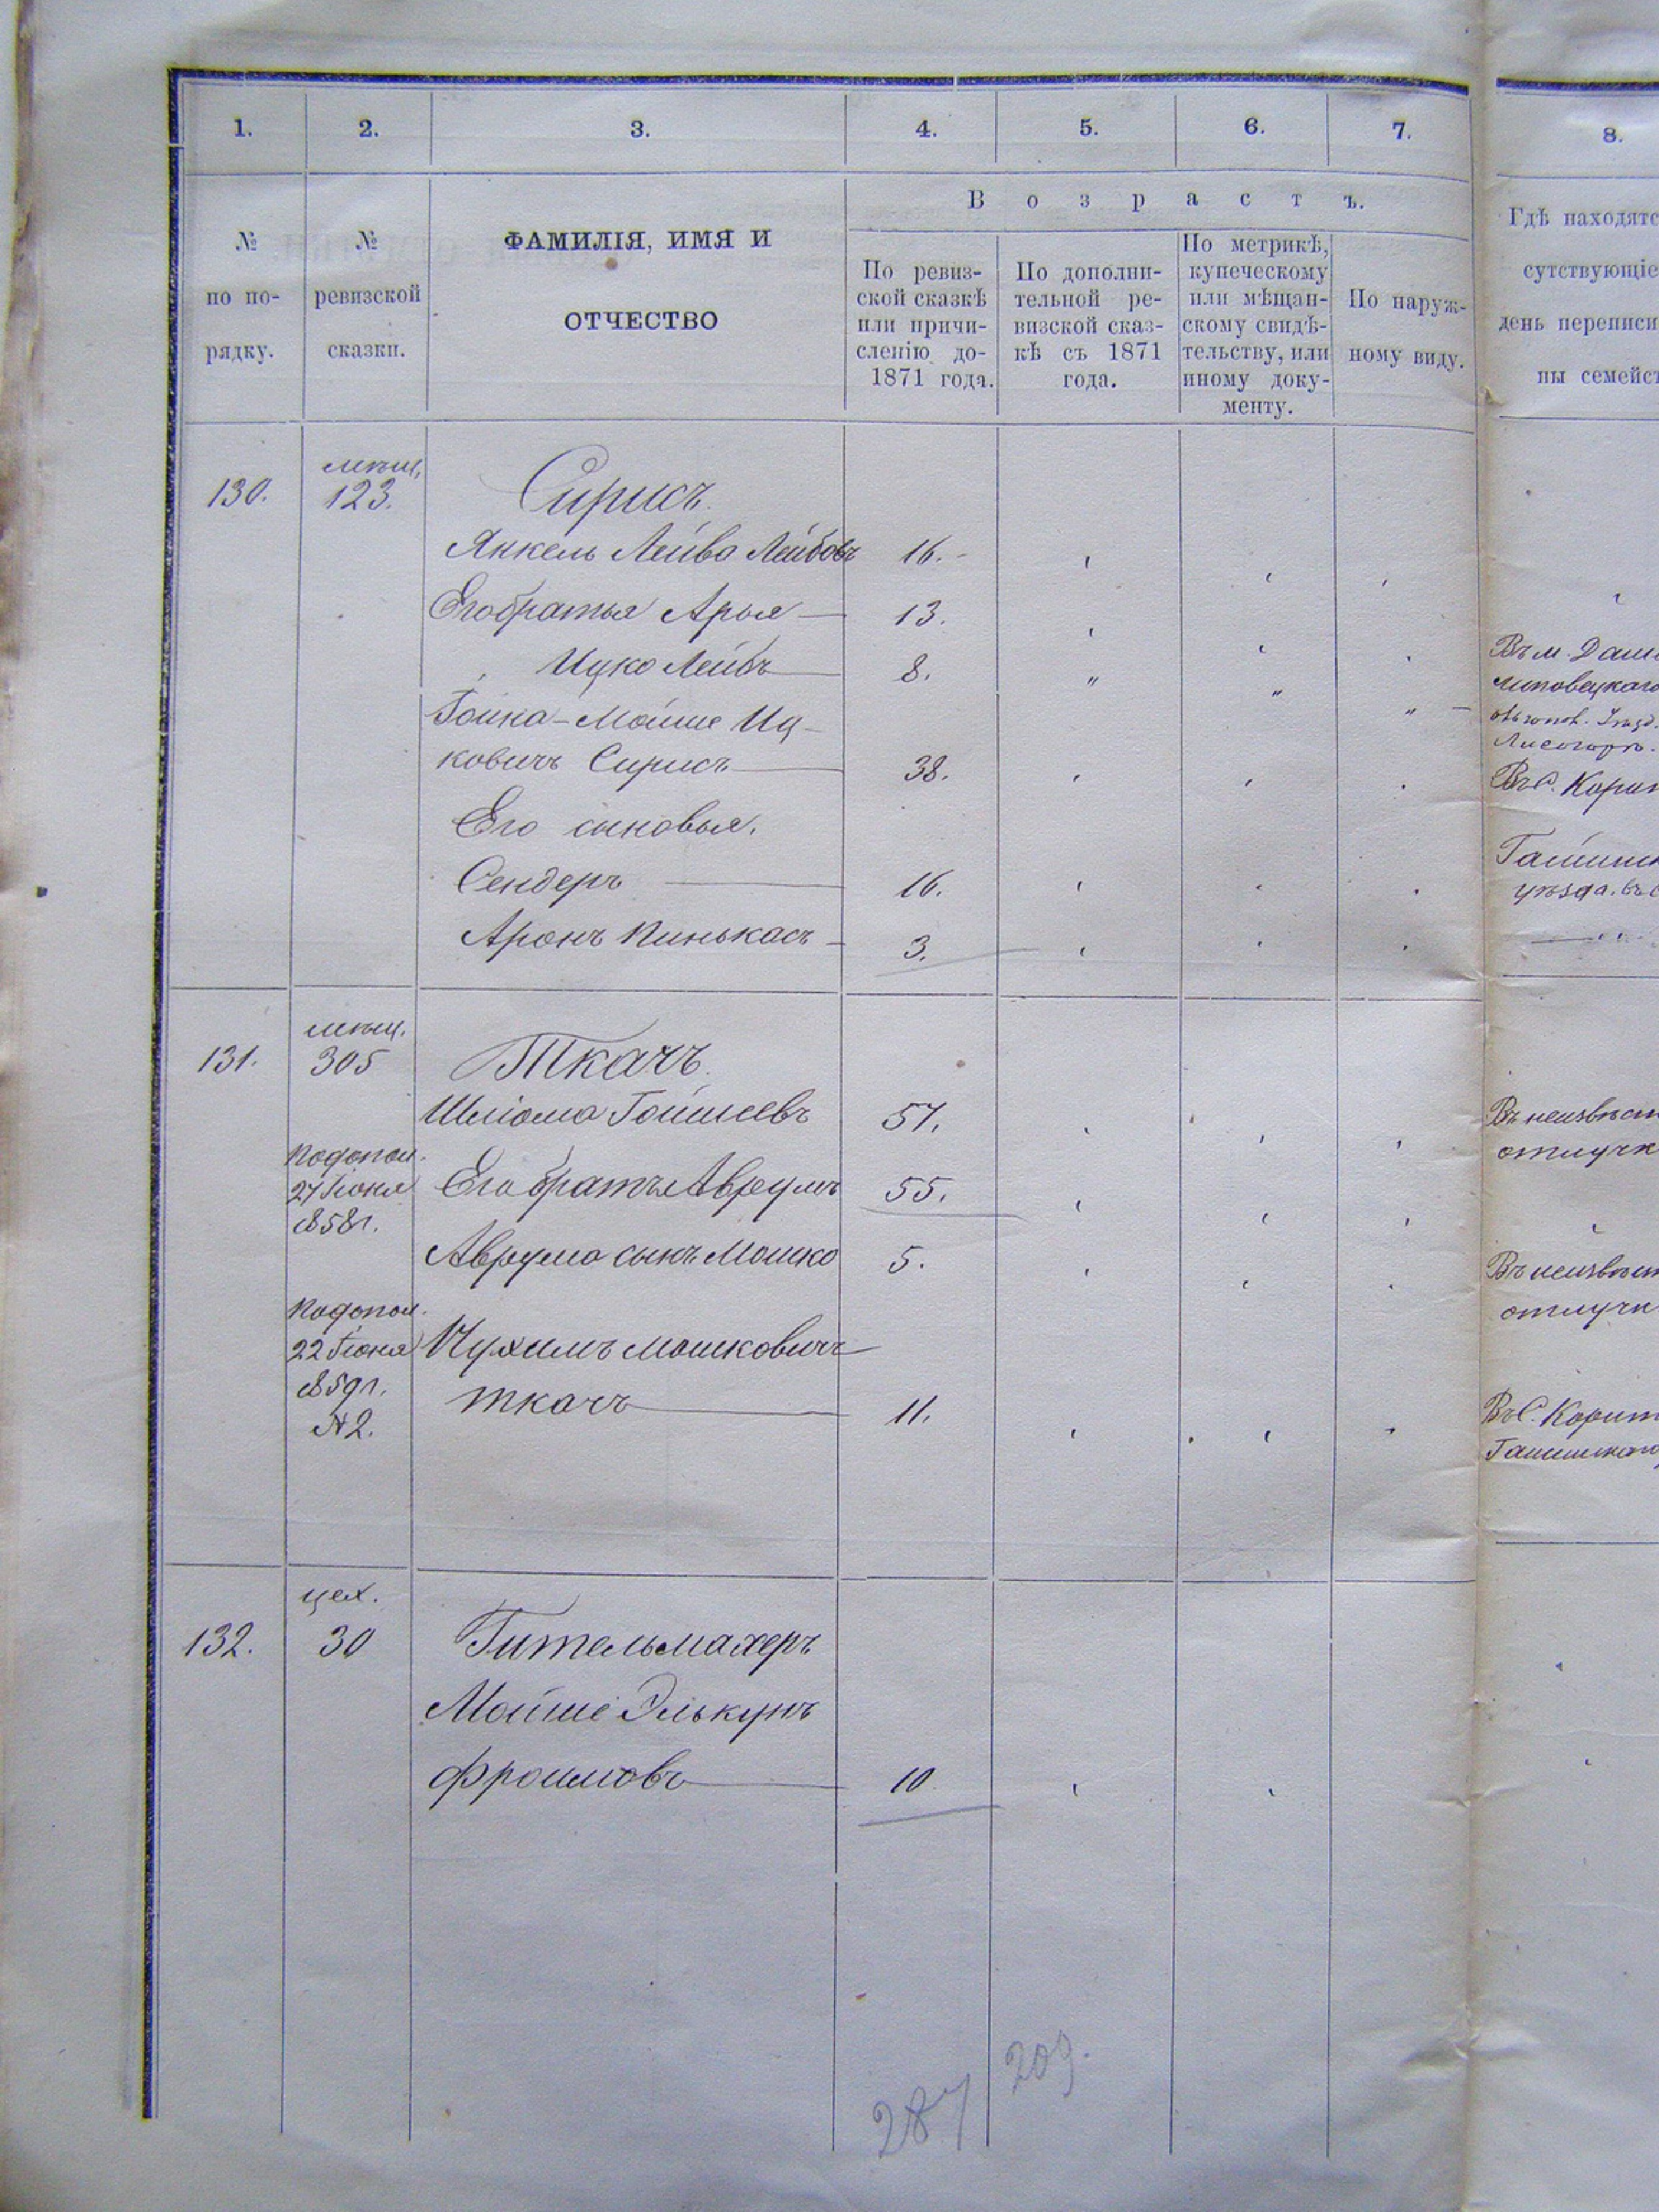 1. 2. 3. 4. 5. 6. 7. 8.
В о з р а с т ъ.
№ по по-рядку.
№ ревизской сказки.
ФАМИЛІЯ, ИМЯ И
ОТЧЕСТВО
По ревиз-
ской сказкѣ
или причи-
сленію до-
1871 года.
По дополни-
тельной ре-
визской сказ-
кѣ съ 1871
года.
По метрикѣ,
купеческому
или мѣщан-
скому свидѣ-
тельству, или
иному доку-
менту.
По наруж-
ному виду.
Гдѣ находятс
сутствующіе
день переписи
ны семейст
130. мѣщ. 123. Сирисъ.
Янкель Лейба Лейбовъ 16.
Его братья Арья 13.
Ицко Лейбъ 8.
Въ м. Даш
липовецкаго
Гойна-Мойше Иц-
ковичъ Сирисъ 38.
Въ С. Корит
Его сыновья.
Гайсинс
Сендеръ 16.
уѣзда. въ с
Аронъ Пинькасъ 3.
131. мѣщ. 305 Ткачъ.
Шліома Гойшіевъ 57.
Въ неизвѣстн
отлучк
по допол.
27 Іюня
858 г.
Его братъ Аврумъ 55.
Аврума сынъ Мошко 5.
Въ неизвѣстн
отлучк
по допол.
22 Іюня
859 г.
№ 2.
Нухимъ Мошковичъ
Ткачъ 11.
Въ С. Корит
Гайсинскаго
132. цех. 30 Гительмахеръ
Мойше Элькунъ
Фроимовъ 10
287
209.